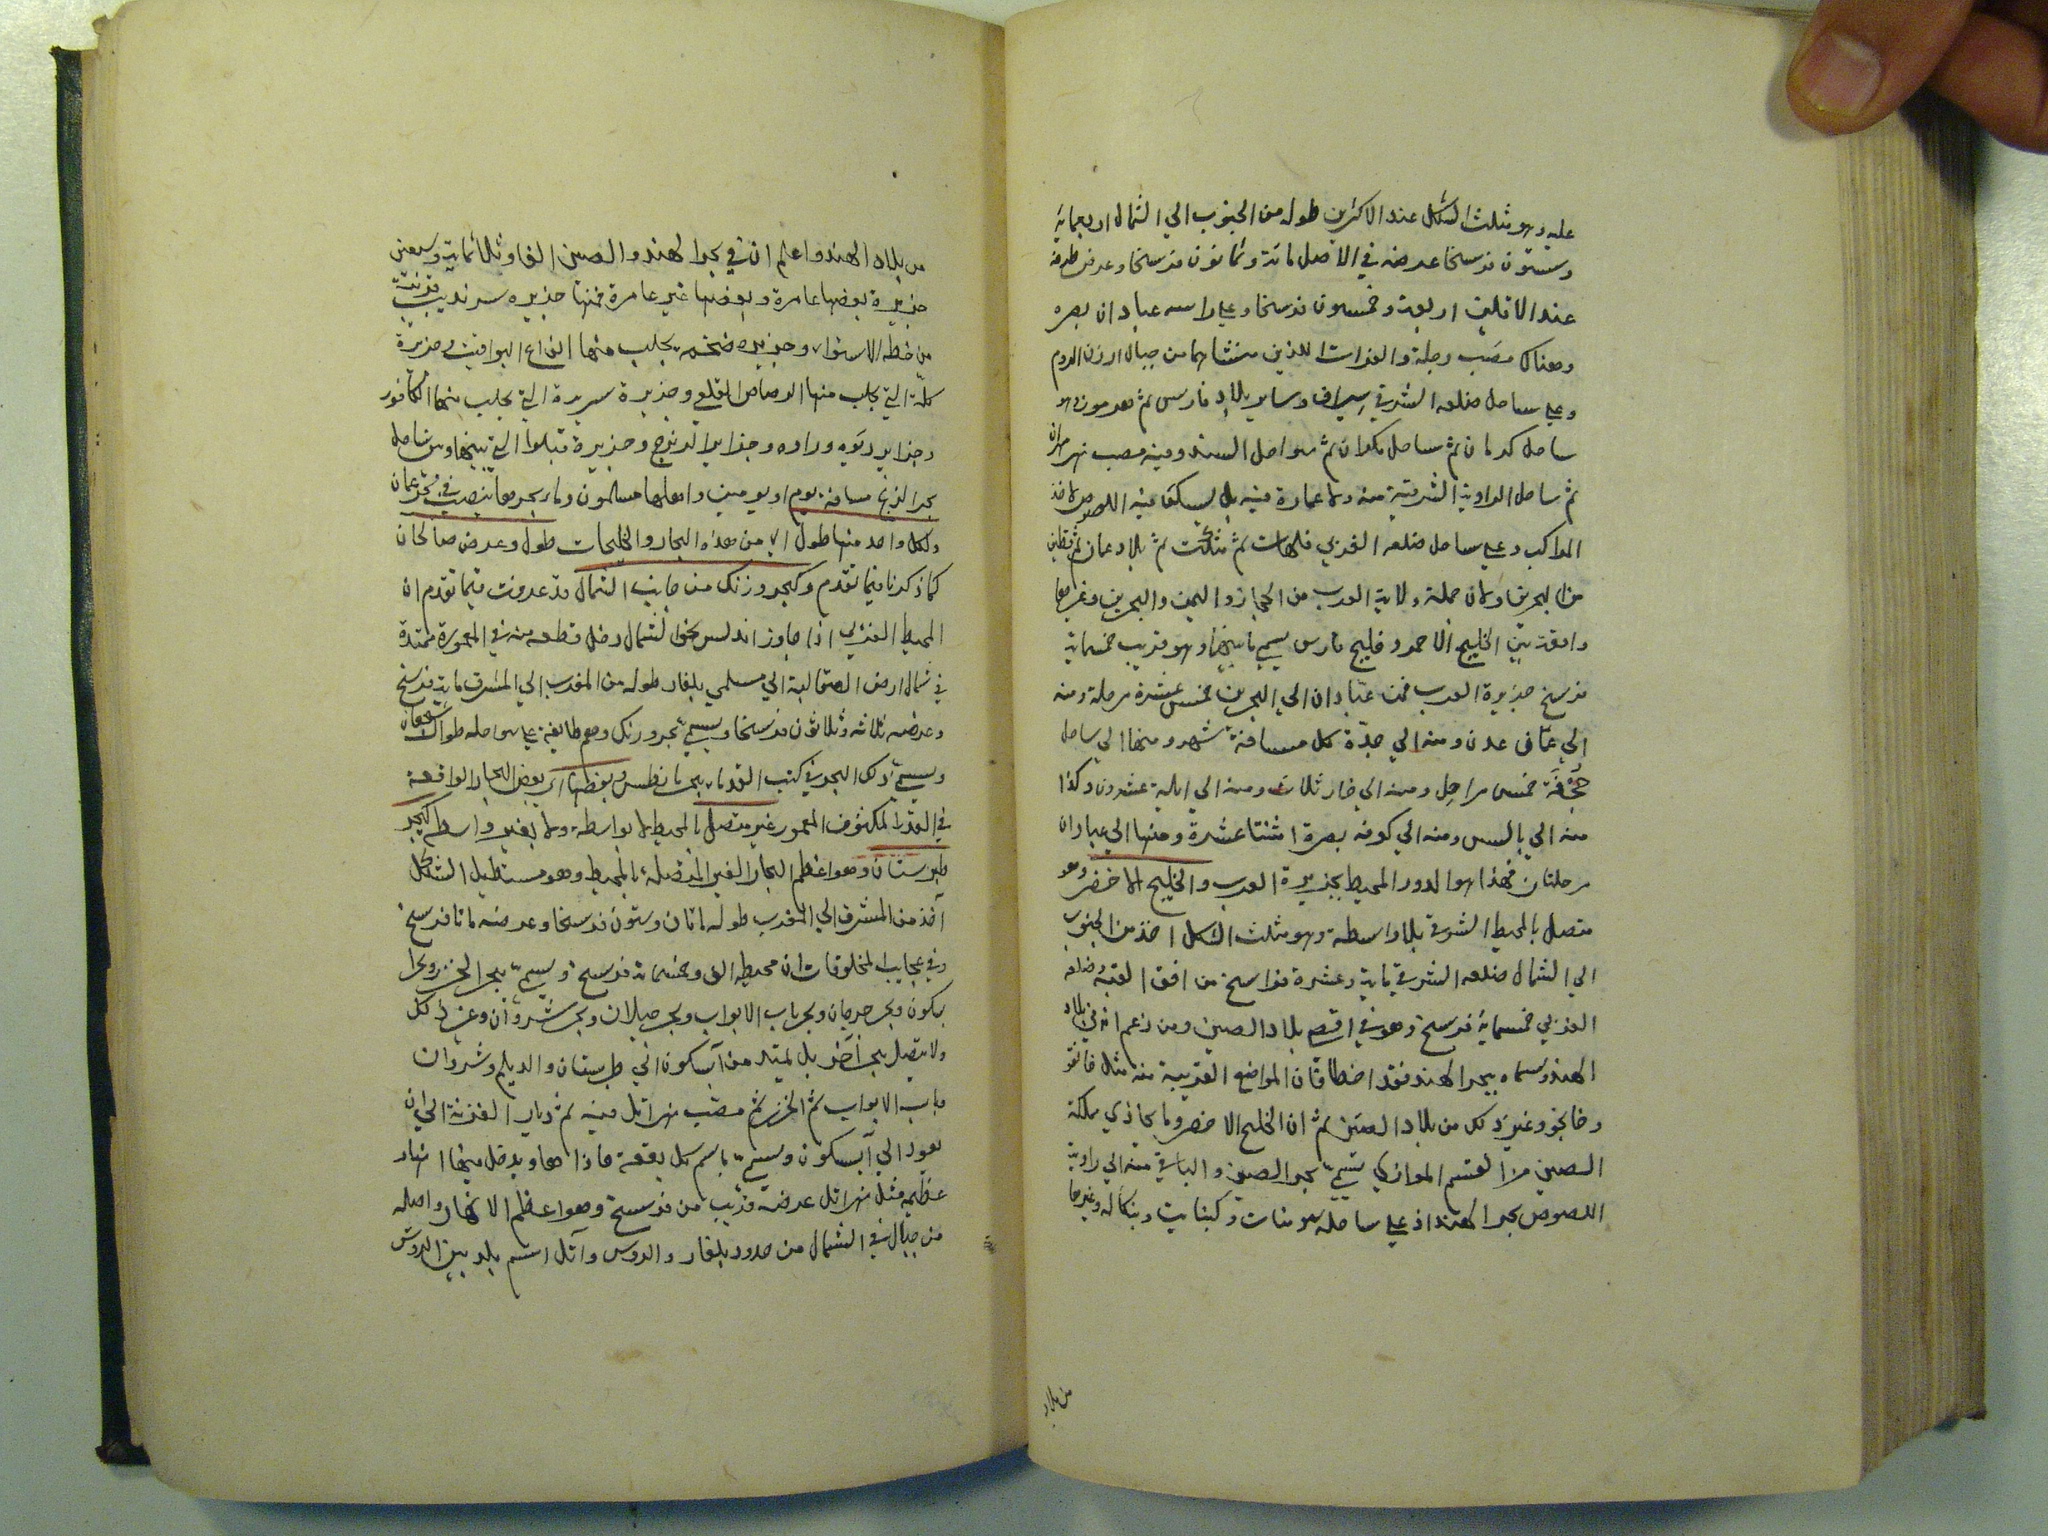 عليه وهو مثلث الشكل عند الاكثرين طوله من الجنوب الي الشمال اربعماية
وستون فرسخا عرضه في الاصل مائة وثمانون فرسخا وعرض طرفه
عند الاقلين اربعة وخمسون فرسخا وعلي راسه عبادان بصره
وهناك مصب دجلة والفرات اللذين منشأهما من جبال ارزن الروم
وعلي ساحل ضلعه الشرقي سيراف وساير بلاد فارس ثم هرموز وهو
ساحل كرمان ثم ساحل مكران ثم سواحل السند وفيه مصب نهر مهران
ثم ساحل الزاوية الشرقية منه ولا عمارة فيه بل يسكن فيه اللصوص لاخذ
المراكب وعلي ساحل ضلعه الغربي قلهات ثم ثم بلاد عمان ثم قطيف
من البحرين وكان جملة ولاية العرب من الحجاز واليمن والبحرين وغيرها
واقعة بين الخليج الاحمر وخليج فارس يسمي ما بينهما وهو قريب خمسماية
فرسخ جزيرة العرب فمن عبادان الي البحرين خمس عشرة مرحلة ومنه
الي عمان عدن ومنه الي جدة كل مسافة شهر ومنها الي ساحل
جحفة خمس مراحل ومنه الي خار ثلاث ومنه الي ايلة عشرون وكذا
منه الي بالس ومنه الي كوفه بصرة اثنتا عشرة ومنها الي عبادان
مرحلتان فهذا هو الدور المحيط بجزيرة العرب والخليج الاخضر وهو
متصل بالمحيط الشرقي بلا واسطة وهو مثلث الشكل اخذ من الجنوب
الي الشمال ضلعه الشرقي ماية وعشرة فراسخ من افق القبة وضلعه
الغربي خمسماية فرسخ وهو في اقصي بلاد الصين ومن زعم انه في بلاد
الهند وسماه ببحر الهند فقد اخطا فان المواضع القريبة منه مثل خانقو
وخانجو وغير ذلك من بلاد الصين ثم ان الخليج الاخضر وما يحاذي مملكة
الصين من القسم الموازي يسمي بحر الصين والباقي منه الي زاوية
اللصوص بحر الهند اذ علي ساحله سومنات وكنبايت وبنكاله وغيرها
من بلاد
من بلاد الهند واعلم ان في بحر الهند والصين الفا وثلاثماية وسبعين
جزيرة بعضها عامرة وبعضها غير عامرة فمنها جزيره سرنديب قريبة
من خطه الاستواء وجزيره ضخمه يجلب منها انواع اليواقيت وجزيرة
كلة التي يجلب منها الرصاص القلعي وجزيرة سريرة التي يجلب منها الكافور
وجزاير وجزاير الرنج وجزيرة قنبلو التي بينها وبين ساحل
بحر الزنج مسافة يوم او يومين واهلها مسلمون وماء بحرها ينصب في بحر عمان
ولكل واحد منها طول اي من هذه البحار والخليجات طول وعرض صالحان
كما ذكرنا فيما تقدم وكبحر ورنك من جانب الشمال قد عرفت فيما تقدم ان
المحيط الغربي اذا جاوز اندلس نحو الشمال دخل قطعه منه في المعمورة ممتدة
في شمال ارض الصقالبة الي مسلمي بلغار طوله من المغرب الي المشرق ماية فرسخ
وعرضه ثلاثة وثلاثون فرسخا ويسمي بحر ورنك وهم طايفة علي سواحله طوال شجعان
ويسمي ذلك البحر في كتب القدماء بحر مانطس وبعضها اي بعض البحار الواقعة
في القدر المكشوف المعمور غير متصل بالمحيط لا بواسطة ولا بغير واسطة كبحر
طبرستان وهو اعظم البحار الغير المتصلة بالمحيط وهو مستطيل الشكل
اخذ من المشرق الي المغرب طوله ماتان وستون فرسخا وعرضه ماتا فرسخ
وفي عجايب المخلوقات ان محيطه الف وخمسماية فرسخ ويسمي بحر الخزر وبحر
بسكون وبحر جرجان وبحر باب الابواب وبحر جيلان وبحر شروان وغير ذلك
ولا يتصل ببحر آخر بل يمتد من آبسكون الي طبرستان والديلم وشروان
وباب الابواب ثم الخزر ثم مصب نهر اتل فيه ثم ديار الغزية الي ان
يعود الي آبسكون ويسمي باسم كل بقعة حاذاها ويدخل فيها انهار
عظيمه مثل نهر اتل عرضه قريب من فرسخ وهو اعظم الانهار واصله
من جبال في الشمال من حدود بلغار والروس وآتل اسم بلد بين الروس